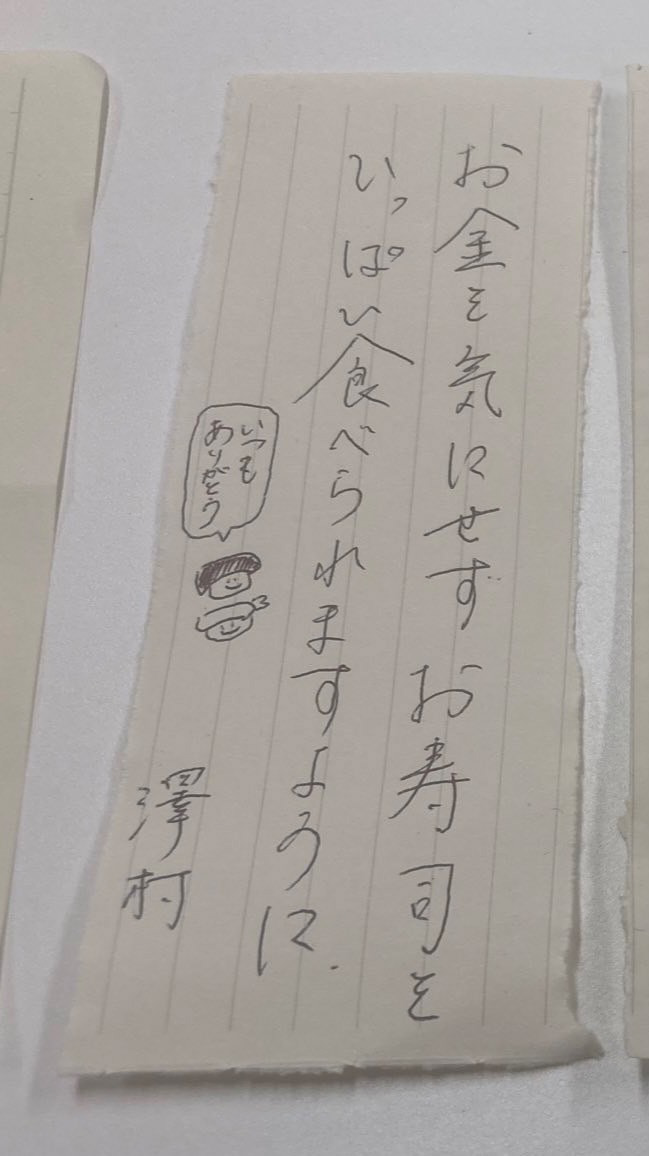 お金を気にせずお寿司を
いっぱい食べられますように.
いつも
ありがとう
澤村